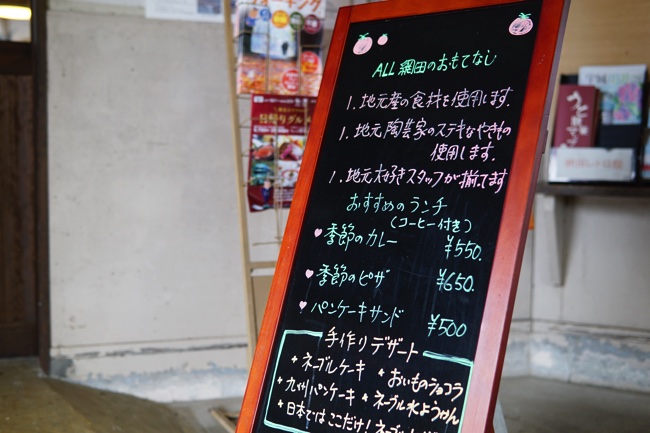 ALL 網田のおもてなし
1.地元産の食材を使用します.
1.地元陶芸家のステキなやきもの
使用します.
1.地元大好きスタッフが揃ってます
おすすめのランチ
(コーヒー付き)
♥季節のカレー ¥550.
♥季節のピザ ¥650.
♥パンケーキサンド ¥500
手作りデザート
ネーブルケーキ おいものショコラ
九州パンケーキ ネーブル水ようかん
日本ではここだけ!ネーブル